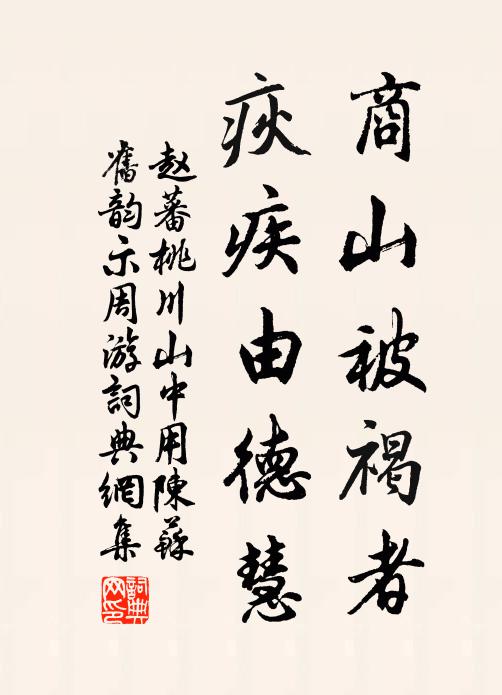 商山被褐者
疢疾由德慧
赵蕃桃川山中用陳蘇
舊韵示周游詞典網集
詞典网印